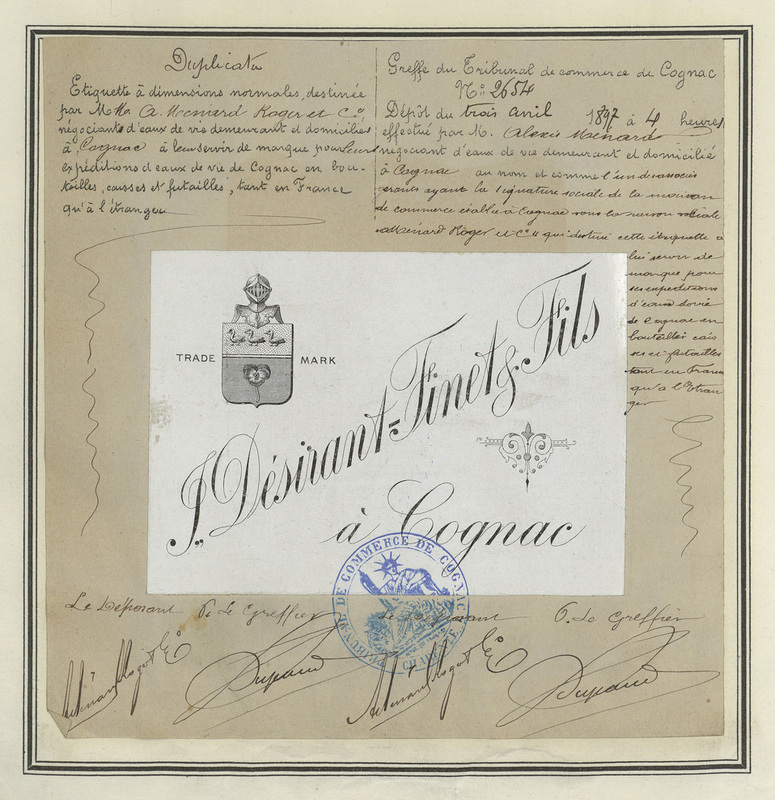 Duplicata
Etiquette à dimensions normales, destinée
par MM. A. Menard Roger et Cº
négociants d'eaux de vie demeurant et domiciliés
à Cognac à leur servir de marque pour leurs
expéditions d'eaux de vie de Cognac en bou-
teilles, caisses et futailles, tant en France
qu'à l'étranger
Greffe du Tribunal de commerce de Cognac
Nº 2654
Dépôt du trois avril 1897 à 4 heures
effectué par M. Alexis Ménard
négociant d'eaux de vie demeurant et domicilié
à Cognac au nom et comme l'un des associés
gérants ayant la signature sociale de la maison
de commerce établie à Cognac sous la raison sociale
"Menard Roger et Cº" qui destine cette étiquette à
lui servir de
marque pour
ses expéditions
d'eaux de vie
de Cognac en
bouteilles cais
ses et futailles
tant en France
qu'à l'Etran
ger
TRADE MARK
J. Désirant-Finet & Fils
à Cognac
TRIBUNAL DE COMMERCE DE COGNAC
CHARENTE
Le Déposant P. Le Greffier Le Déposant P. Le Greffier